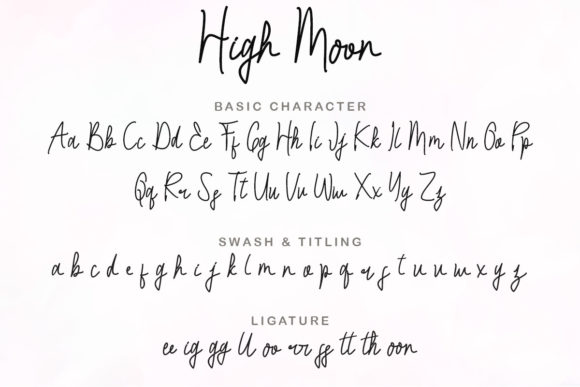 High Moon
BASIC CHARACTER
Aa Bb Cc Dd Ee Ff Gg Hh Ii Jj Kk Ll Mm Nn Oo Pp
Qq Rr Ss Tt Uu Vv Ww Xx Yy Zz
SWASH & TITLING
a b c d e f g h i j k l m n o p q r s t u v w x y z
LIGATURE
ee ig gg ll oo rr ss tt th oon